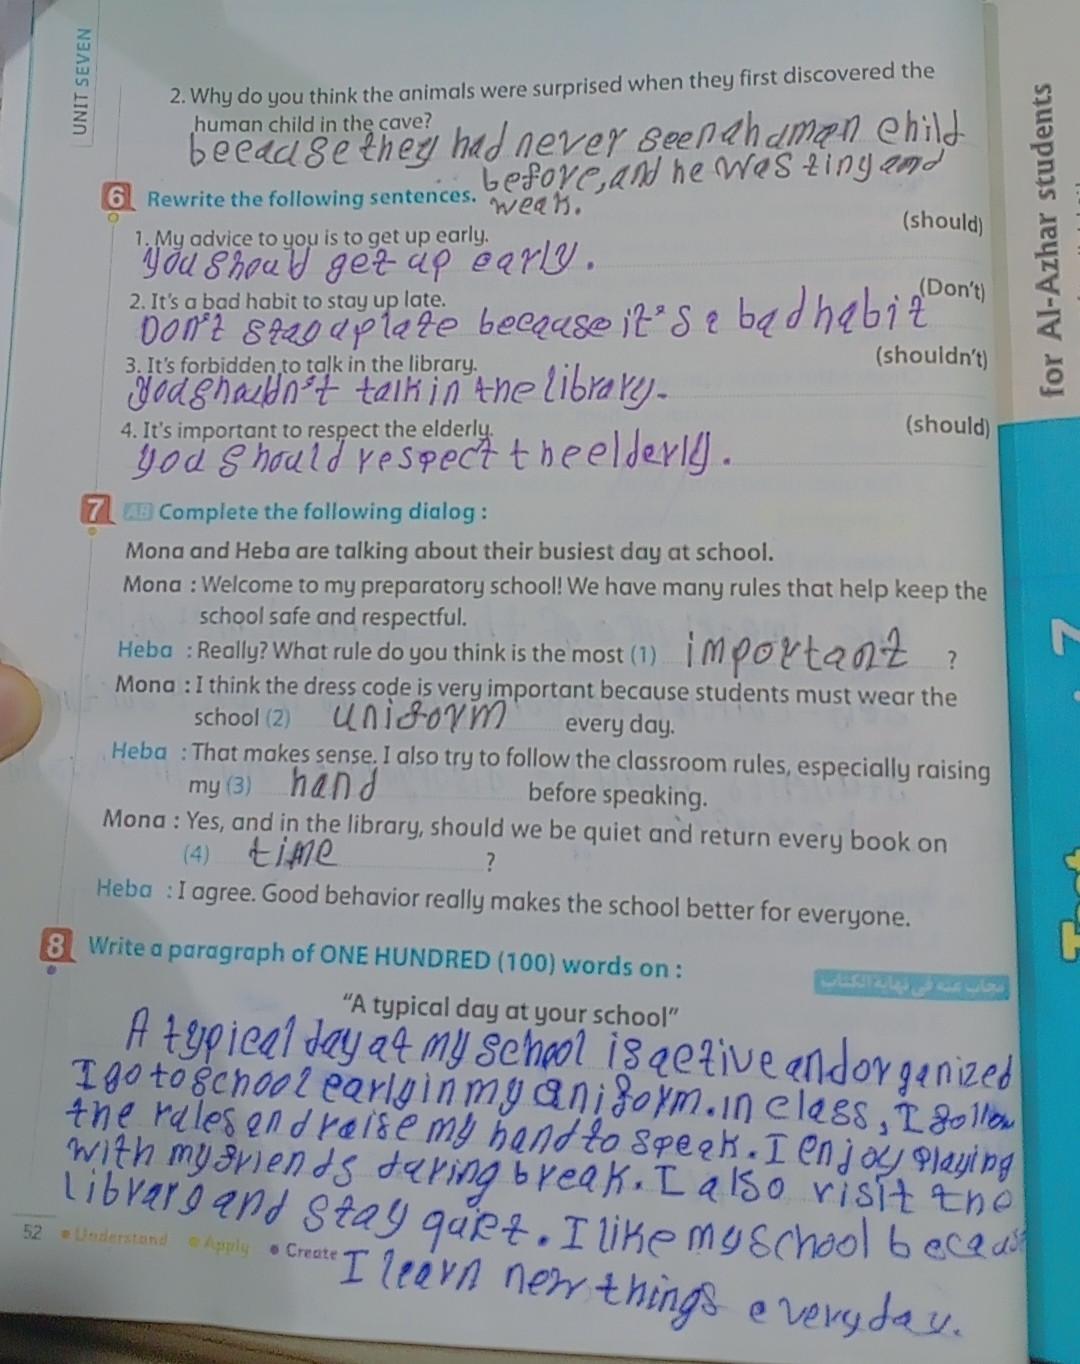 UNIT SEVEN
2. Why do you think the animals were surprised when they first discovered the
human child in the cave?
because they had never seen a human child
before, and he was tiny and
weak.
6 Rewrite the following sentences.
1. My advice to you is to get up early. (should)
you should get up early.
2. It's a bad habit to stay up late. (Don't)
Don't stay up late because it's a bad habit
3. It's forbidden to talk in the library. (shouldn't)
you shouldn't talk in the library.
4. It's important to respect the elderly. (should)
you should respect the elderly.
7 AB Complete the following dialog :
Mona and Heba are talking about their busiest day at school.
Mona : Welcome to my preparatory school! We have many rules that help keep the
school safe and respectful.
Heba : Really? What rule do you think is the most (1) important ?
Mona : I think the dress code is very important because students must wear the
school (2) uniform every day.
Heba : That makes sense. I also try to follow the classroom rules, especially raising
my (3) hand before speaking.
Mona : Yes, and in the library, should we be quiet and return every book on
(4) time ?
Heba : I agree. Good behavior really makes the school better for everyone.
8 Write a paragraph of ONE HUNDRED (100) words on :
مجاب عنه في نهاية الكتاب
"A typical day at your school"
A typical day at my school is active and organized
I go to school early in my uniform. in class, I follow
the rules and raise my hand to speak. I enjoy playing
with my friends during break. I also visit the
library and stay quiet. I like my school because
I learn new things everyday.
52 Understand Apply Create
for Al-Azhar students
7